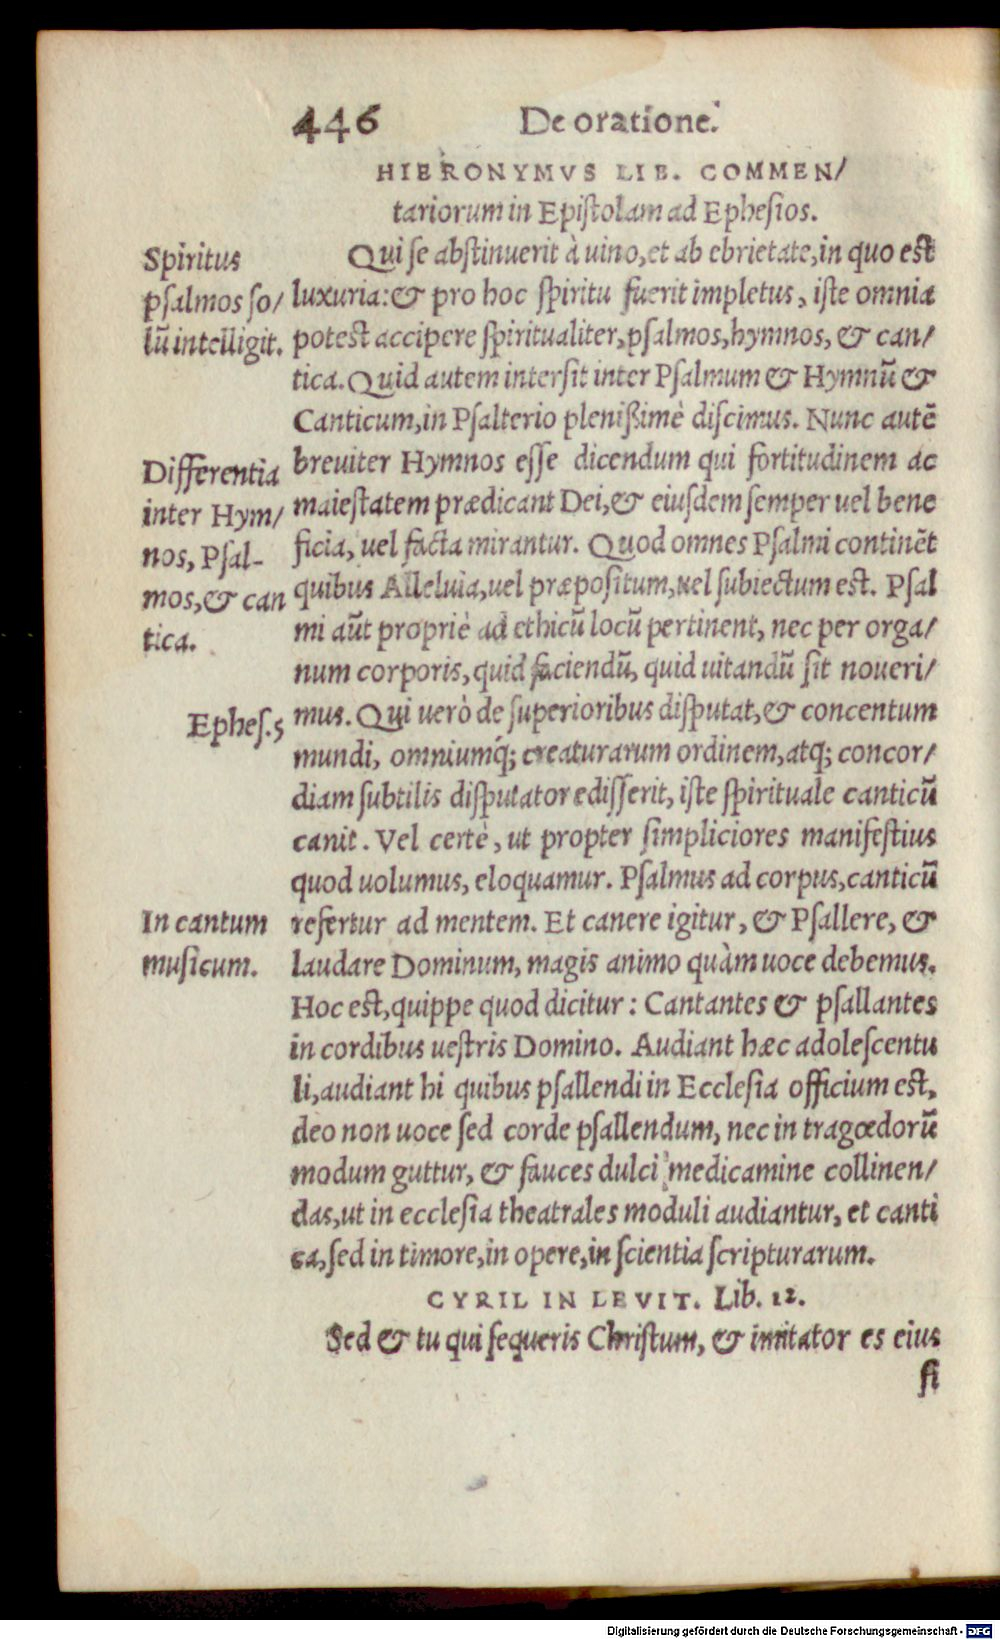 446 De oratione.
HIERONYMVS LIB. COMMEN/
tariorum in Epistolam ad Ephesios.
Spiritus
psalmos so/
lũ intelligit.
Qui se abstinuerit à uino, et ab ebrietate, in quo est
luxuria: & pro hoc spiritu fuerit impletus, iste omnia
potest accipere spiritualiter, psalmos, hymnos, & can/
tica. Quid autem intersit inter Psalmum & Hymnũ &
Canticum, in Psalterio plenißimè discimus. Nunc autẽ
Differentia
inter Hym/
nos, Psal-
mos, & can
tica.
breuiter Hymnos esse dicendum qui fortitudinem ac
maiestatem prædicant Dei, & eiusdem semper uel bene
ficia, uel facta mirantur. Quod omnes Psalmi continẽt
quibus Alleluia, uel præpositum, uel subiectum est. Psal
mi aũt propriè ad ethicũ locũ pertinent, nec per orga/
num corporis, quid faciendũ, quid uitandũ sit noueri/
Ephes. 5
mus. Qui uerò de superioribus disputat, & concentum
mundi, omniumq́; creaturarum ordinem, atq; concor/
diam subtilis disputator edisserit, iste spirituale canticũ
canit. Vel certè, ut propter simpliciores manifestius
quod uolumus, eloquamur. Psalmus ad corpus, canticũ
In cantum
musicum.
refertur ad mentem. Et canere igitur, & Psallere, &
laudare Dominum, magis animo quàm uoce debemus.
Hoc est, quippe quod dicitur: Cantantes & psallantes
in cordibus uestris Domino. Audiant hæc adolescentu
li, audiant hi quibus psallendi in Ecclesia officium est,
deo non uoce sed corde psallendum, nec in tragœdorũ
modum guttur, & fauces dulci medicamine collinen/
das, ut in ecclesia theatrales moduli audiantur, et canti
ca, sed in timore, in opere, in scientia scripturarum.
CYRIL IN LEVIT. Lib. 12.
Sed & tu qui sequeris Christum, & imitator es eius
si
Digitalisierung gefördert durch die Deutsche Forschungsgemeinschaft - DFG